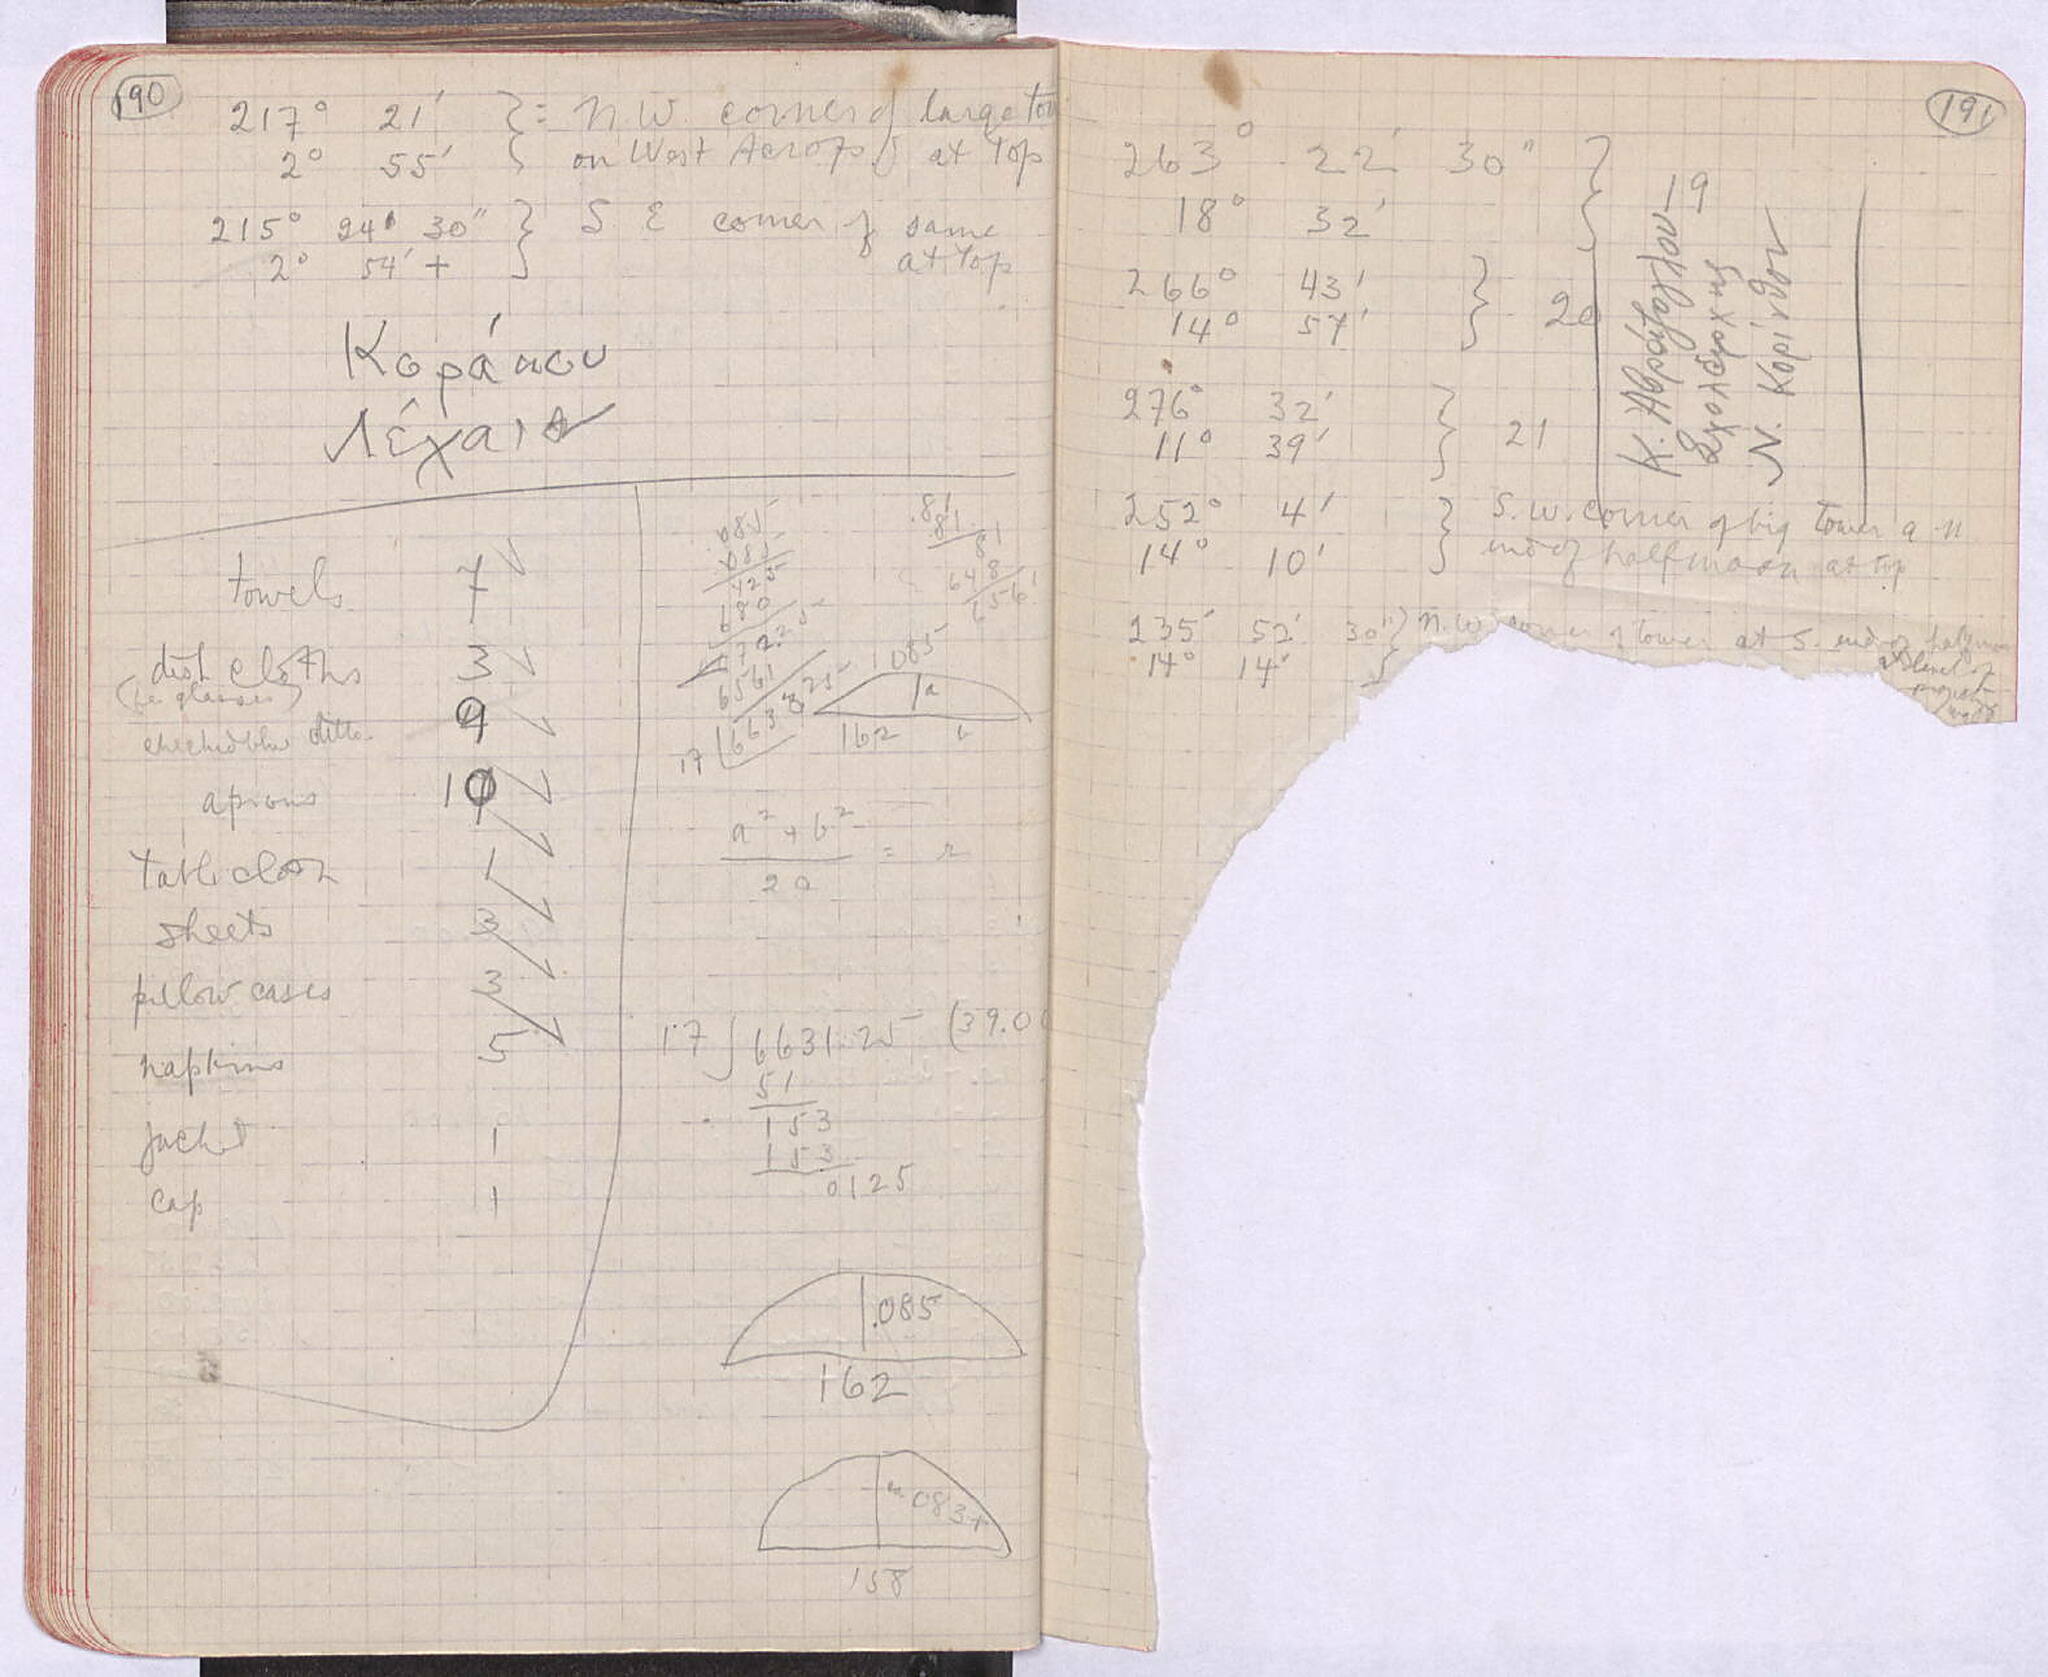 190
217° 21' } = N.W. corner of large tow
2° 55' } on West Acrop. at top
215° 24' 30" } S E corner of same
2° 54' + } at top
Κοράκου
Λέχαιο
towels 7
dish cloths 3
(i.e. glasses)
checked blue ditto 9
aprons 10
table cloth 1
sheets 3
pillow cases 3
napkins 5
jacket 1
cap 1
.085
.085
425
680
7225
6561
17
.81
.81
81
648
6561
085
a
162
a² + b² = r
2a
17 6631.25 (39.0
51
153
153
0125
.085
162
.083+
158
191
263° 22' 30" } 19
18° 32'
266° 43' } 20
14° 57'
276° 32' } 21
11° 39'
252° 4' } S.W. corner of big tower a N
14° 10' } end of halfmoon at top
235° 52' 30" } N.W. corner of tower at S. end of halfmoon
14° 14' } at level of
Σχολάρχης
Ν. Κορίνθου